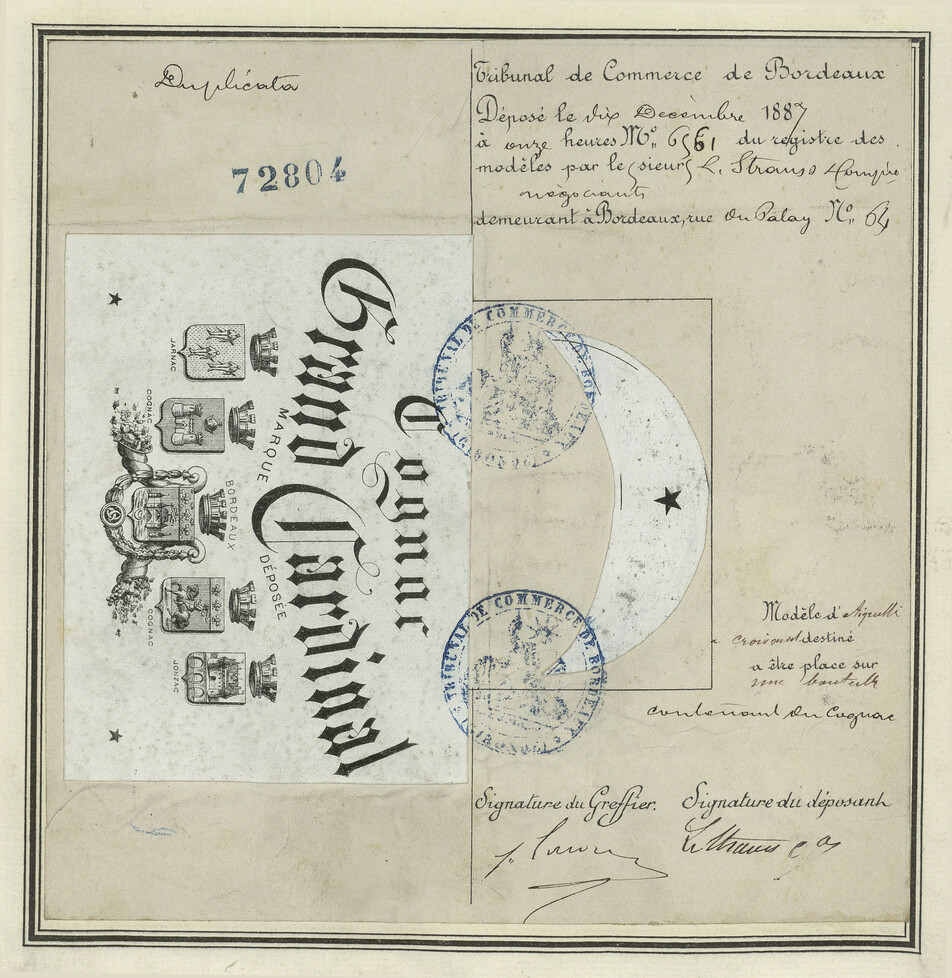 Duplicata
72804
Tribunal de Commerce de Bordeaux
Déposé le dix Decembre 1887
à onze heures No. 6561 du registre des
modèles par le sieurs L. Strauss & Compie
négociants
demeurant à Bordeaux, rue du Palay No. 64
Cognac
Grand Cardinal
MARQUE DÉPOSÉE
JARNAC
COGNAC
BORDEAUX
COGNAC
JONZAC
TRIBUNAL DE COMMERCE DE BORDEAUX
(GIRONDE)
TRIBUNAL DE COMMERCE DE BORDEAUX
(GIRONDE)
Modèle d'
croissant destiné
a être place sur
une bouteille
contenant du Cognac
Signature du Greffier. Signature du déposant
L Strauss & Co